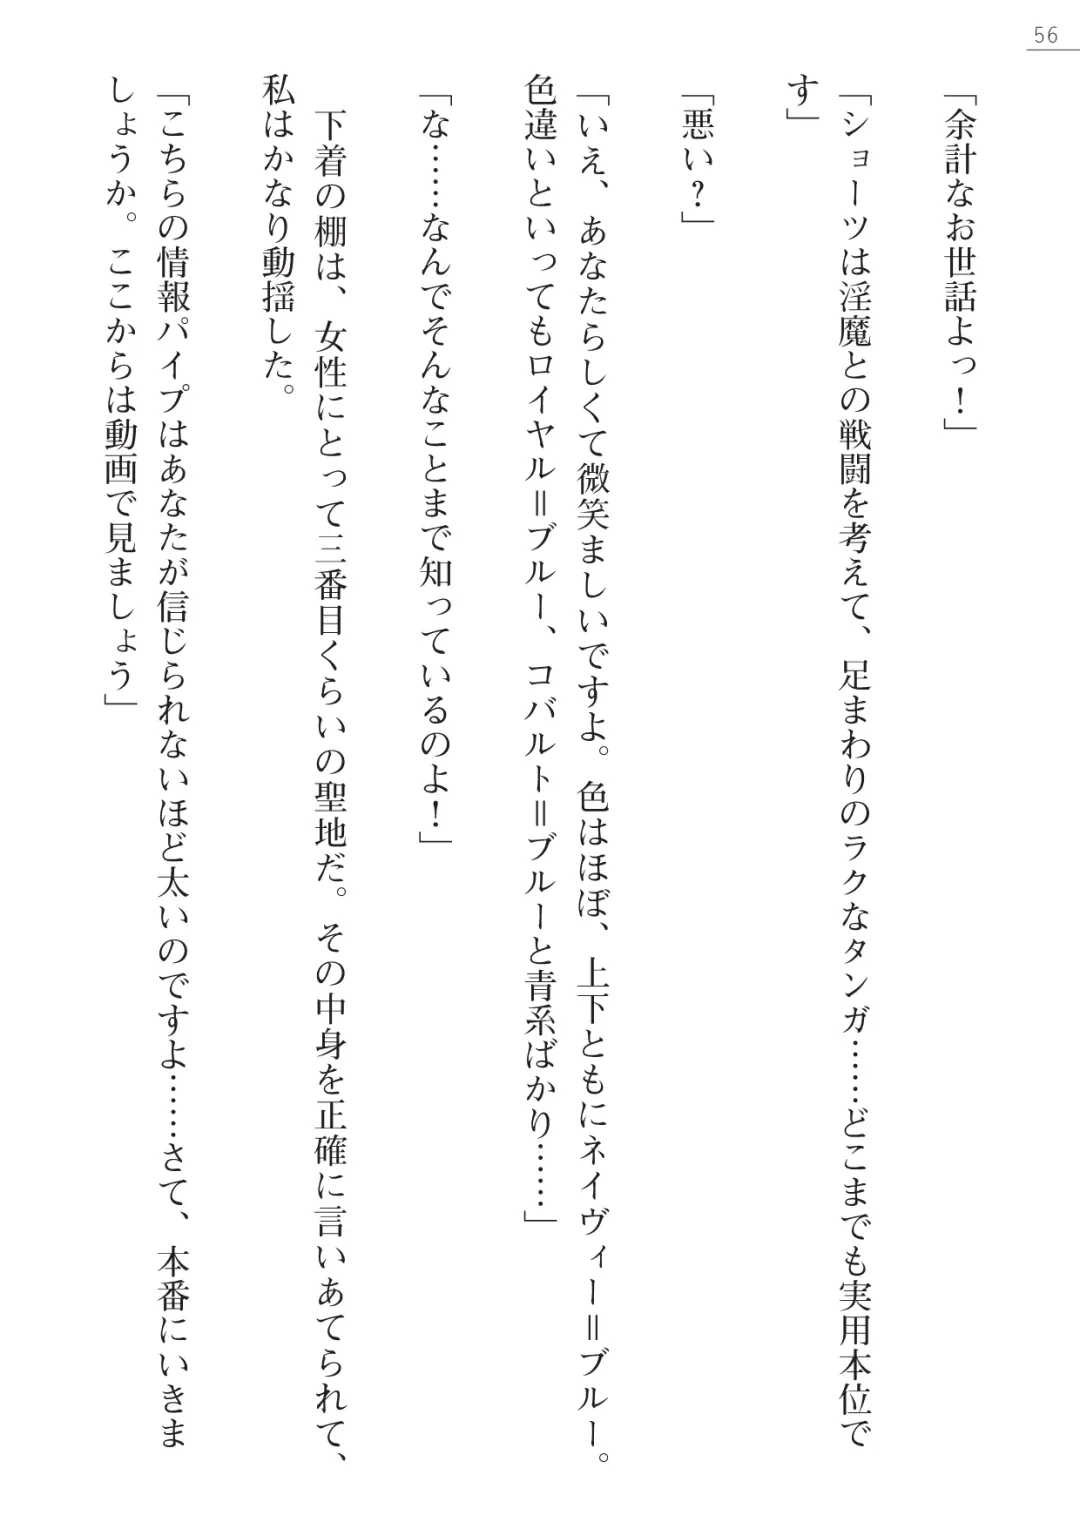 56
「余計なお世話よっ！」
「ショーツは淫魔との戦闘を考えて、足まわりのラクなタンガ……どこまでも実用本位で
す」
「悪い？」
「いえ、あなたらしくて微笑ましいですよ。色はほぼ、上下ともにネイヴィー＝ブルー。
色違いといってもロイヤル＝ブルー、コバルト＝ブルーと青系ばかり……」
「な……なんでそんなことまで知っているのよ！」
　下着の棚は、女性にとって三番目くらいの聖地だ。その中身を正確に言いあてられて、
私はかなり動揺した。
「こちらの情報パイプはあなたが信じられないほど太いのですよ……さて、本番にいきま
しょうか。ここからは動画で見ましょう」